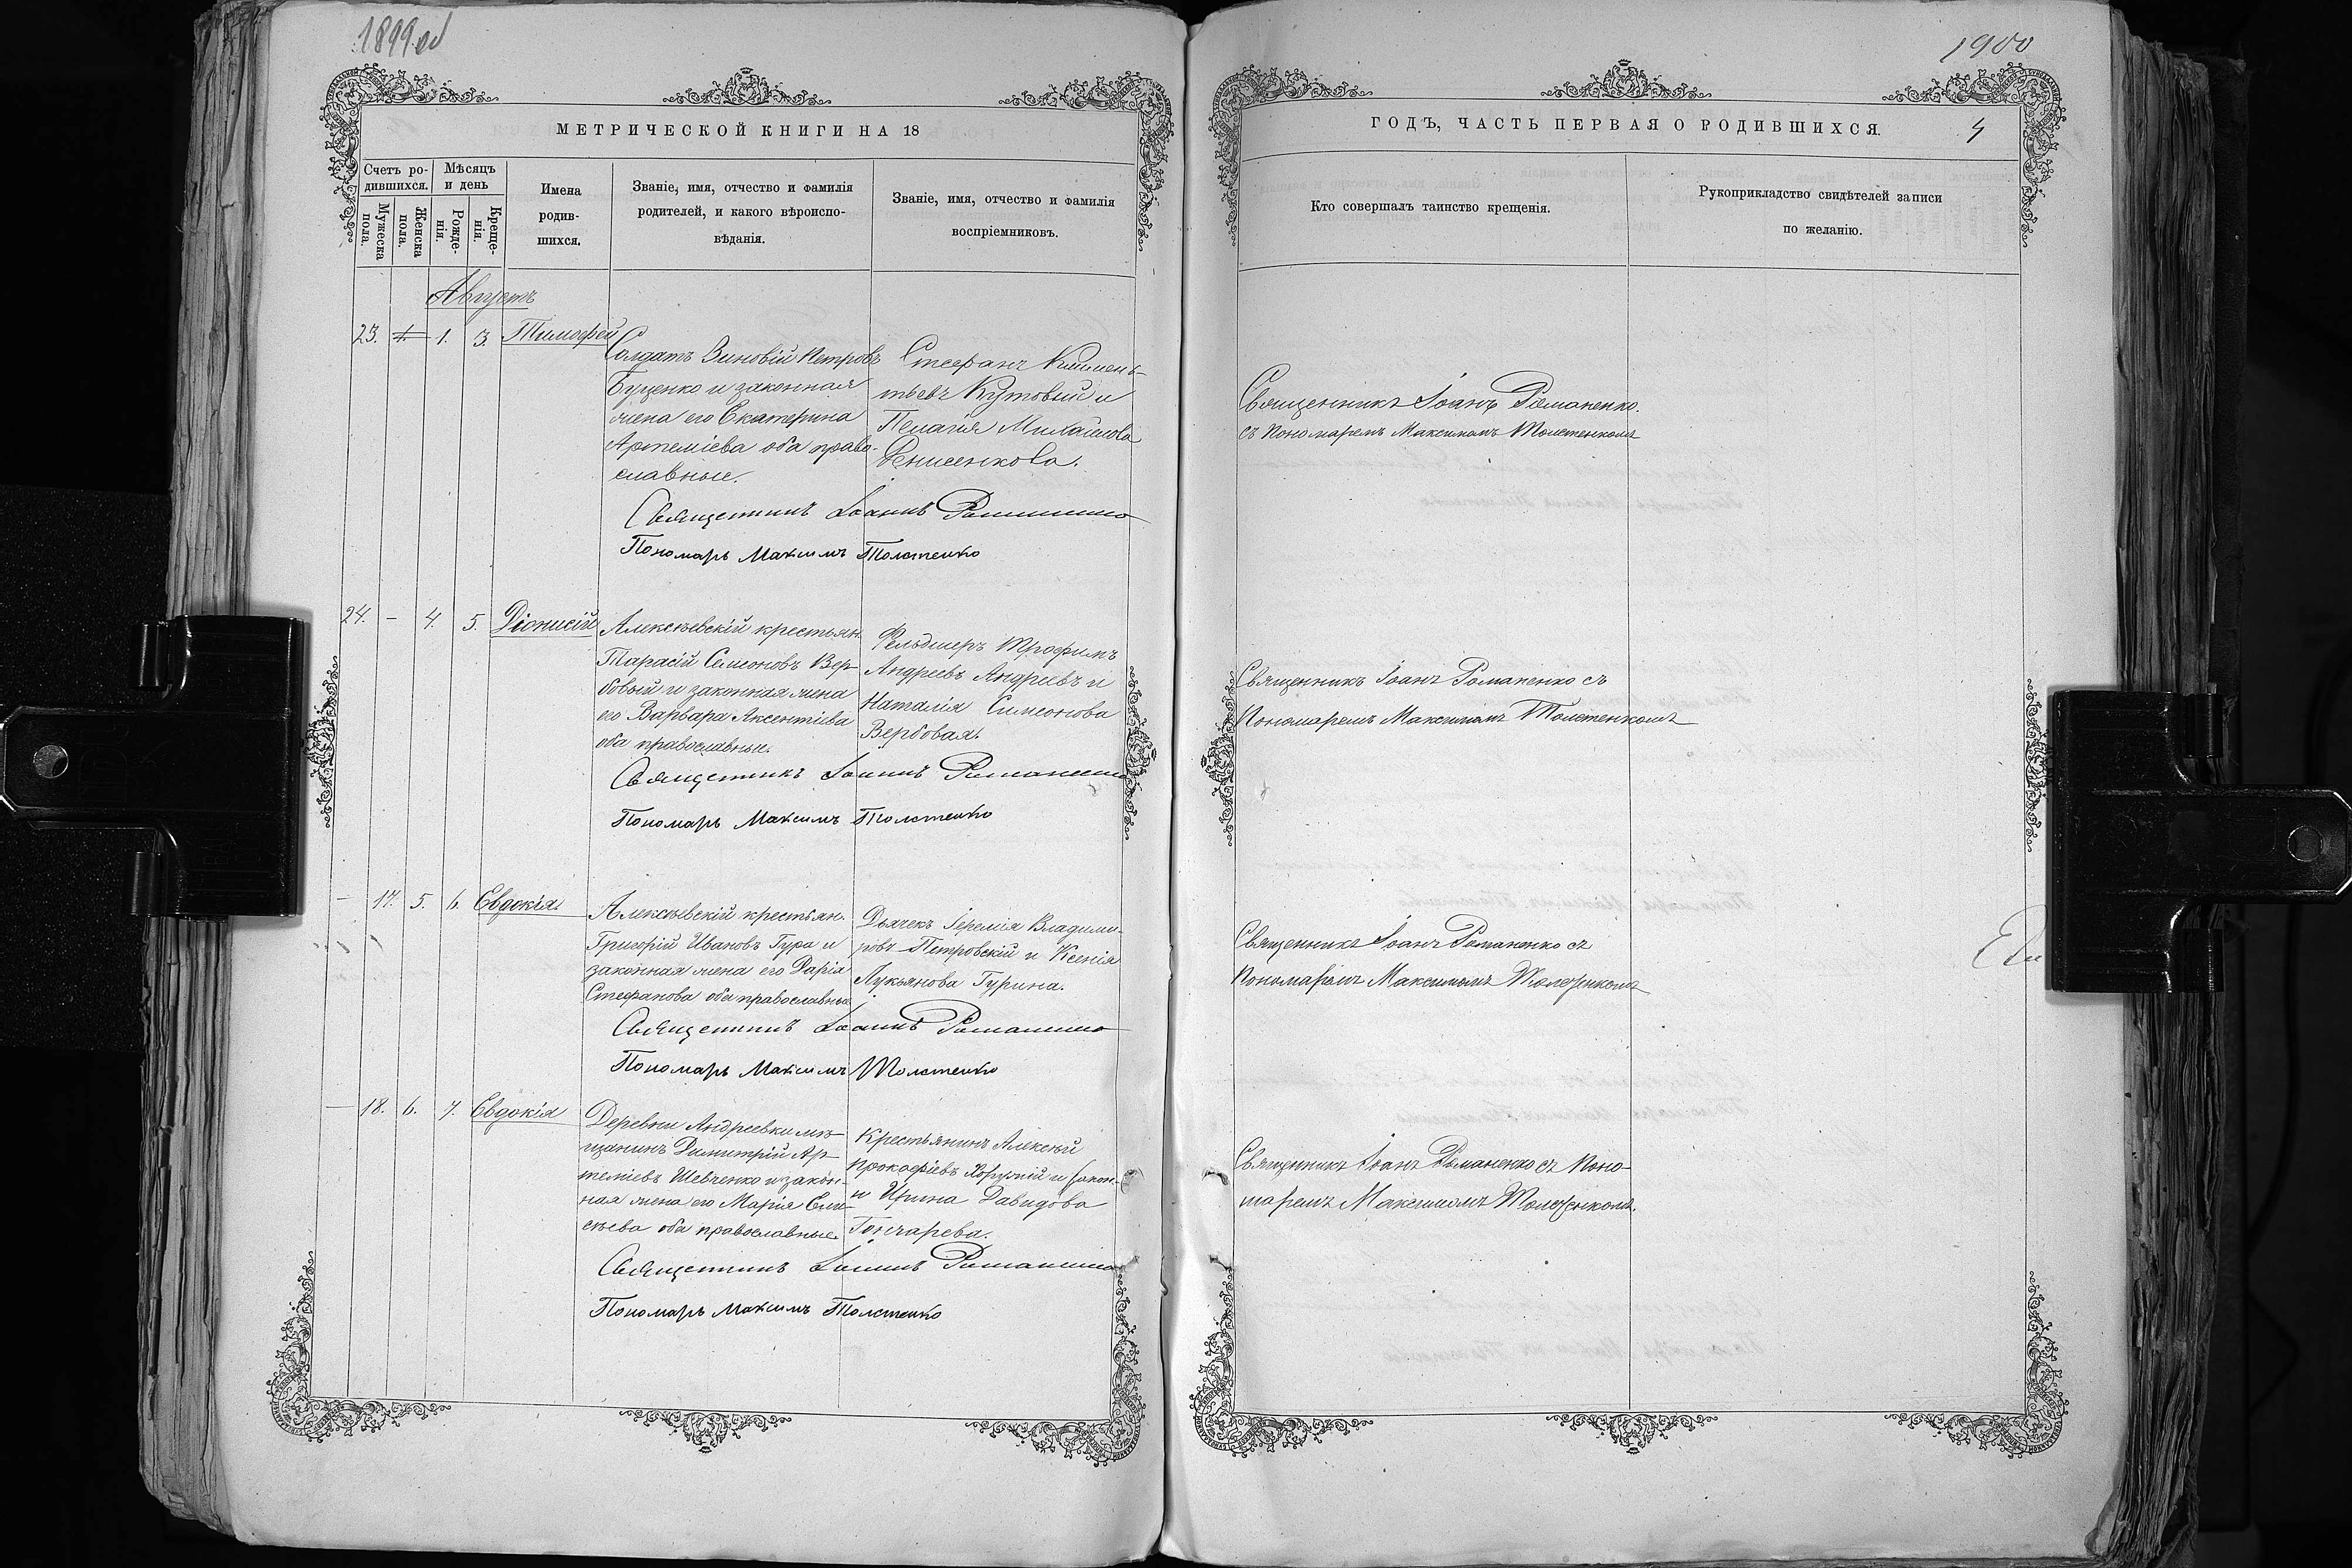 1899 об
1900
МЕТРИЧЕСКОЙ КНИГИ НА 18
Счетъ родившихся.
Мѣсяцъ и день
Мужеска пола.
Женска пола.
Рожденія.
Крещенія.
Имена родившихся.
Званіе, имя, отчество и фамилія
родителей, и какого вѣроиспо-
вѣданія.
Званіе, имя, отчество и фамилія
воспріемниковъ.
Августъ
23. 1. 1. 3. Тимофей
Солдатъ Зиновій Петровъ
Буценко и законная
жена его Екатерина
Артеміева оба право-
славные.
Стефанъ Климен-
тьевъ Кутовый и
Пелагія Михайлова
Денисенкова.
Священникъ Іоаннъ Романенко
Пономарь Максимъ Толстенко
24. – 4. 5. Діонисій
Алексѣевскій крестьян.
Тарасій Семеоновъ Вер-
бовый и законная жена
его Варвара Аксентіева
оба православные.
Фельдшеръ Трофимъ
Андреевъ Андреевъ и
Наталія Симеонова
Вербовая.
Священникъ Іоаннъ Романенко
Пономарь Максимъ Толстенко
– 17. 5. 6. Евдокія
Алексѣевскій крестьян.
Григорій Ивановъ Гура и
законная жена его Дарія
Стефанова оба православные
Дьячекъ Іеремія Владими-
ровъ Петровскій и Ксенія
Лукьянова Гурина.
Священникъ Іоаннъ Романенко
Пономарь Максимъ Толстенко
– 18. 6. 7. Евдокія
Деревни Андреевки мѣ-
щанинъ Димитрій Ар-
теміевъ Шевченко и закон-
ная жена его Марія Ели-
сѣева оба православные.
Крестьянинъ Алексѣй
Прокофіевъ Хоружій
и Ирина Давидова
Гончарева.
Священникъ Іоаннъ Романенко
Пономарь Максимъ Толстенко
ГОДЪ, ЧАСТЬ ПЕРВАЯ О РОДИВШИХСЯ.
Кто совершалъ таинство крещенія.
Рукоприкладство свидѣтелей записи
по желанію.
Священникъ Іоанъ Романенко.
съ Пономаремъ Максимомъ Толстенкомъ
Священникъ Іоанъ Романенко съ
Пономаремъ Максимомъ Толстенкомъ
Священникъ Іоанъ Романенко съ
Пономаремъ Максимомъ Толстенкомъ
Священникъ Іоанъ Романенко съ Поно-
маремъ Максимомъ Толстенкомъ.